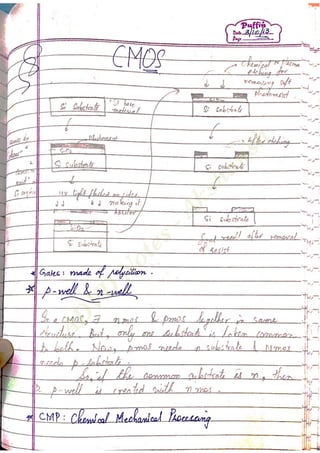 Puffin
Date 3/10/13
Page
CMOS
Chemical or plasma
etching for
removing soft
Photoresist
Si Substrate
Si base
material
Si Substrate
Photoresist
SiO2
Si substrate
After etching
Si substrate
UV light
SiO2
Si substrate
Si substrate
Final result after removal
of resist
* Gates : made of polysilicon.
* p-well & n-well
In a CMOS, ∃ nmos & pmos together in same
structure. But, only one substrate is taken common
to both. Now, pmos needs n substrate & nmos
needs p substrate.
So, if the common substrate is n, then
p-well is created with nmos.
* CMP : Chemical Mechanical Processing